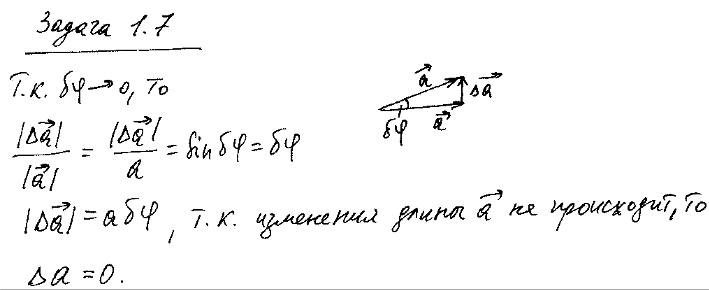 Задача 1.7
Т.к. δφ→0, то
|Δa⃗|/|a⃗| = |Δa⃗|/a = sin δφ = δφ
|Δa⃗| = aδφ, т.к. изменения длины a⃗ не происходит, то
Δa = 0.
a⃗
Δa⃗
δφ
a⃗